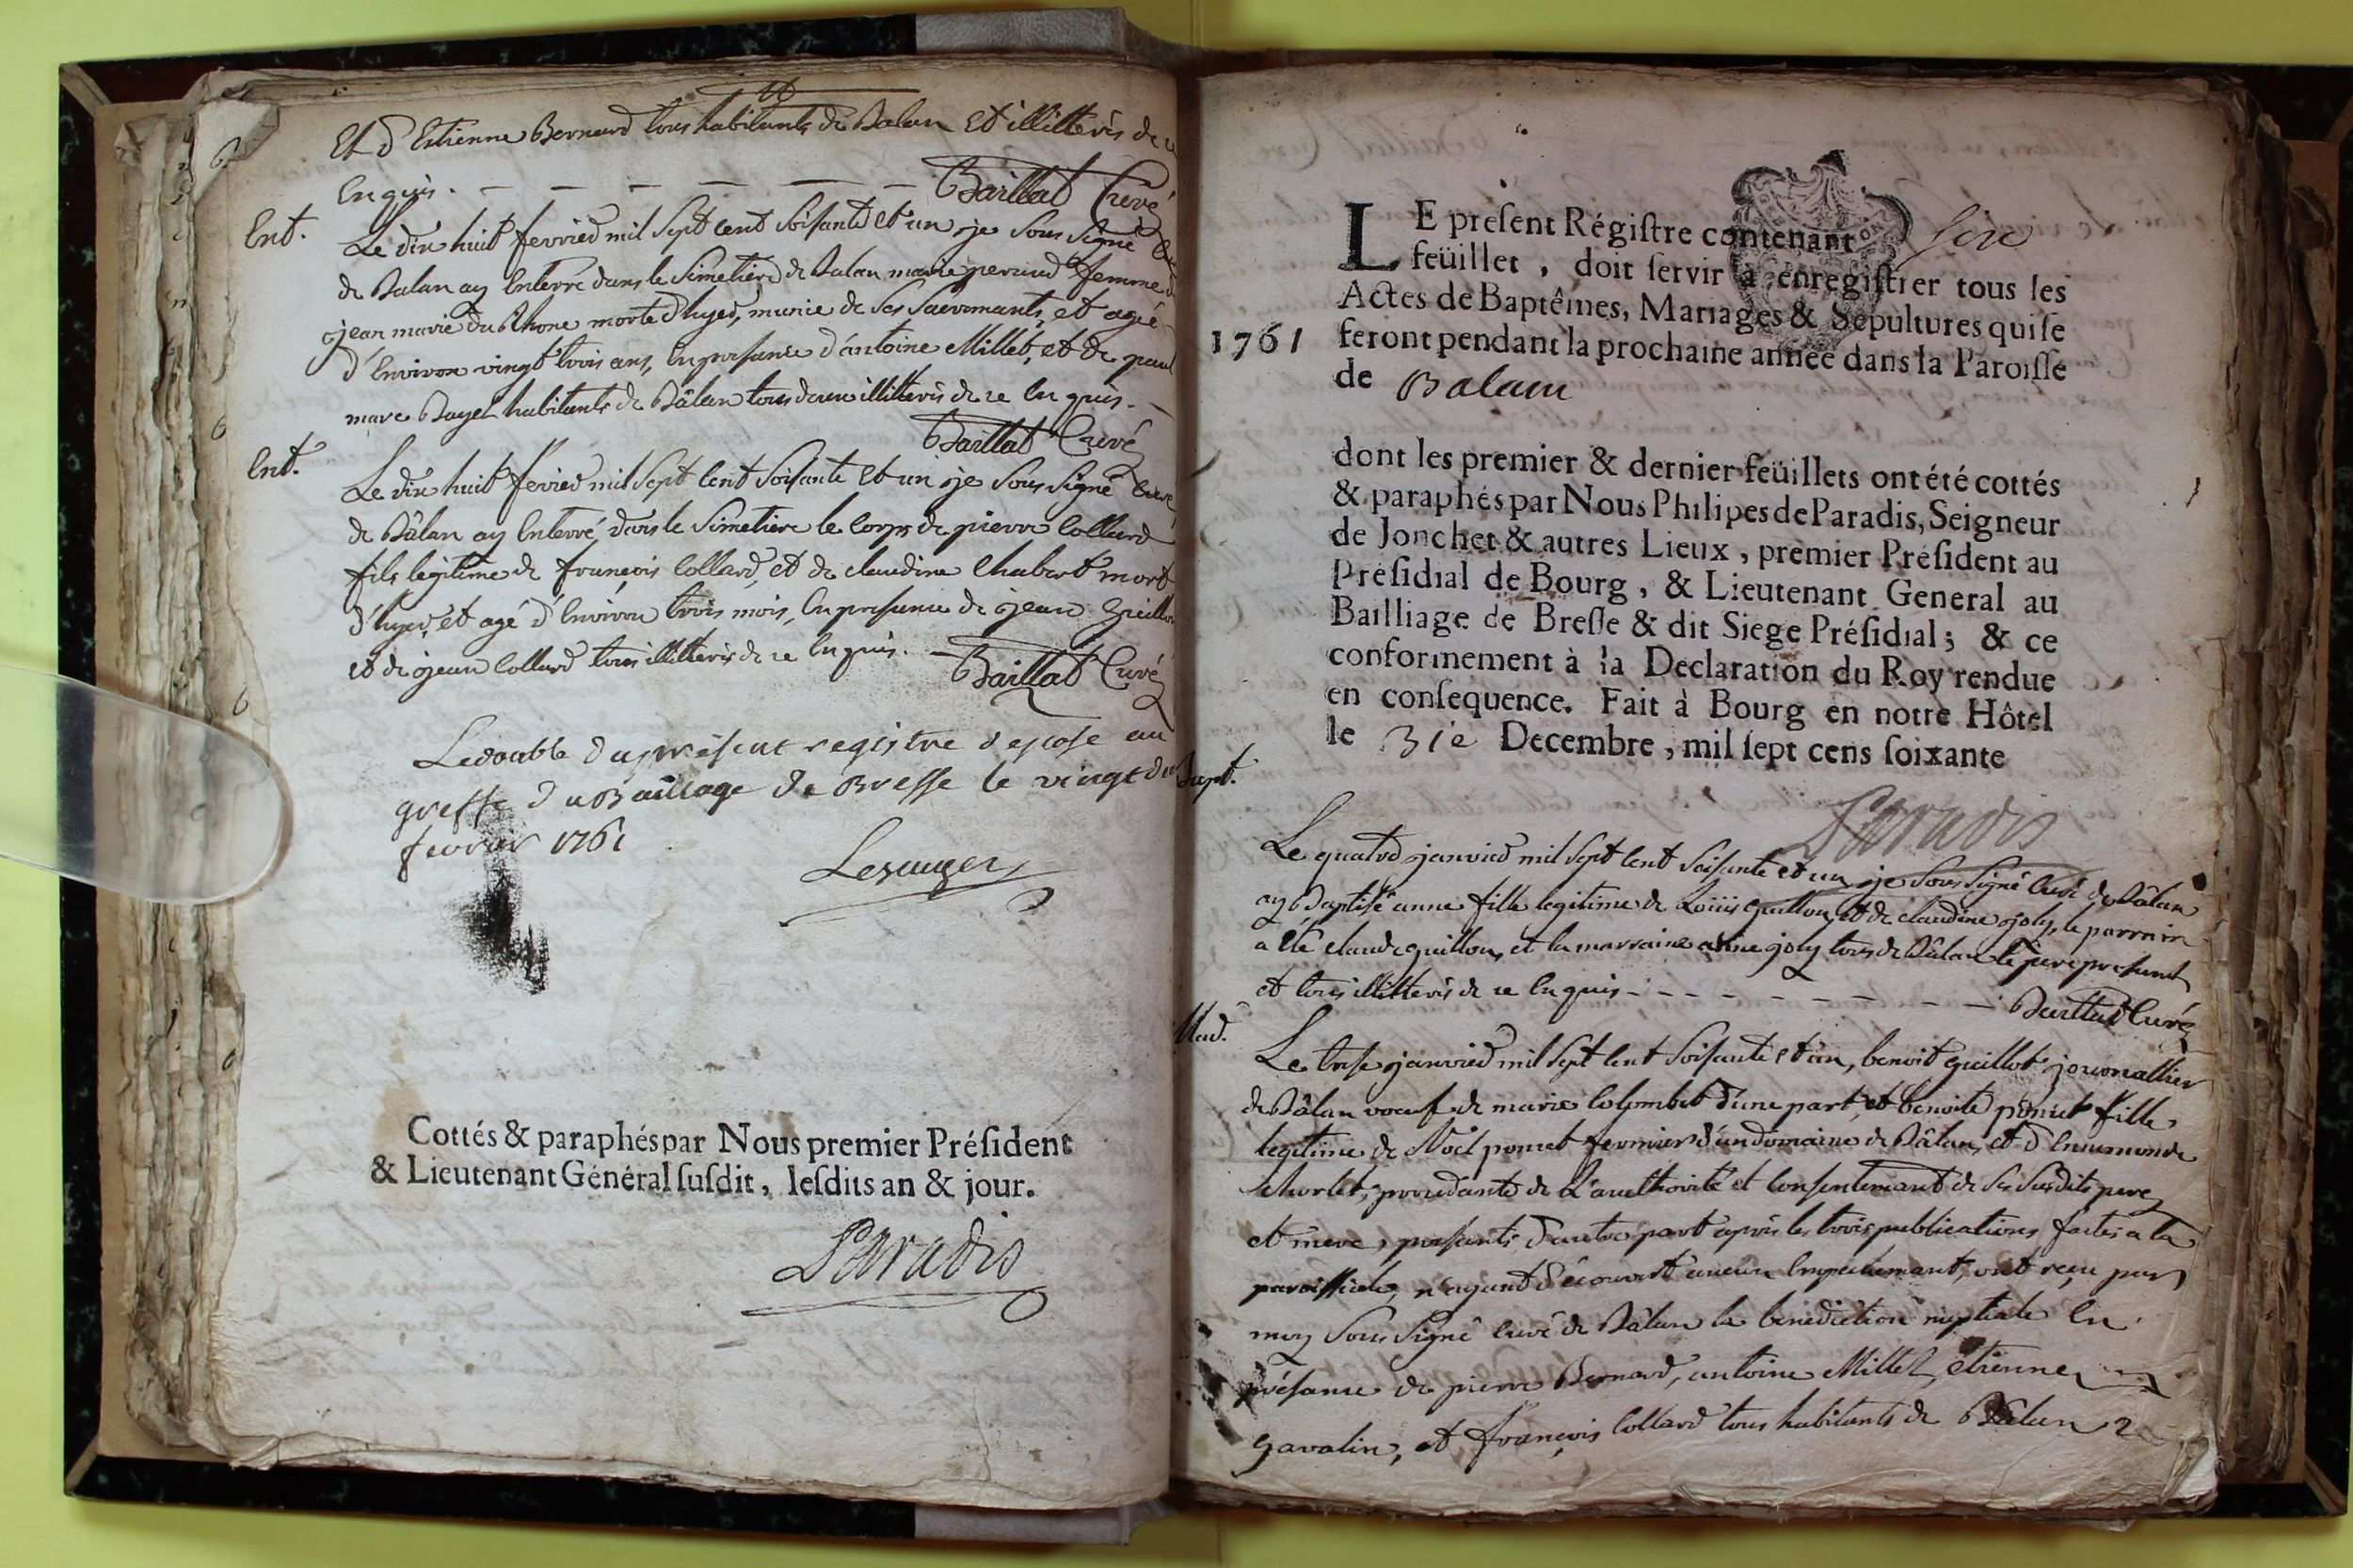 Et d'Estienne Bernard tous habitants de Balan et illitterés de ce
enquis. — — — — — — Baillat Curé
Ent.
Le dix huit fevrier mil sept cent soisante et un je sous signé Cu
de Balan ay enterré dans le simetiere de Balan marie peraud femme d
jean marie du Rhone morte d'hyer, munie de ses sacremants, et agée
d'environ vingt trois ans, en presance d'antoine Millet, et de paul
marc Bayet habitants de Bâlan tous deux illitterés de ce enquis. —
Baillat Curé
Ent.
Le dix huit fevrier mil sept cent soisante et un je sous signé Curé
de Bâlan ay enterré dans le simetiere le corps de pierre Collard
fils legitime de françois Collard, et de claudine Chabert mort
d'hyer, et agé d'environ trois mois, en presance de jean Guillon
et de jean Collard tous illitterés de ce enquis. —
Baillat Curé
Le double du présent registre deposé au
greffe du Bailliage de Bresse le vingt du
fevrier 1761
Cottés & paraphés par Nous premier Préſident
& Lieutenant Général ſuſdit, leſdits an & jour.
Paradis
LE preſent Régiſtre contenant
feüillet, doit ſervir à enregiſtrer tous les
Actes de Baptêmes, Mariages & Sépultures qui ſe
1761 feront pendant la prochaine année dans la Paroiſſe
de Balam
dont les premier & dernier feüillets ont été cottés
& paraphés par Nous Philipes de Paradis, Seigneur
de Jonchet & autres Lieux, premier Préſident au
Préſidial de Bourg, & Lieutenant General au
Bailliage de Breſſe & dit Siege Préſidial; & ce
conformement à la Declaration du Roy rendue
en conſequence. Fait à Bourg en notre Hôtel
le 31e Decembre, mil ſept cens ſoixante
Paradis
Bapt.
Le quatre janvier mil sept cent soisante et un je sous signé Curé de Bâlan
ay Baptisé anne fille legitime de Loüis guillon, et de claudine joly, le parrain
a été claude guillon, et la marraine anne joly tous de Bâlan le pere present
et tous illitterés de ce enquis - - - - - - - - — Baillat Curé
Mar.
Le trese janvier mil sept cent soisante et un, benoit guillot journallier
de Bâlan vœuf de marie Colombet d'une part, et benoite poncet fille
legitime de Noël poncet fermier d'un domaine de Bâlan, et d'Ennemonde
Charlet, procedante de l'aucthorité et consentemant de ses susdits pere
et mere, presents d'autre part après les trois publications faites a la
paroissiale, n'ayant découvert aucun empechemant, ont reçu par
moy sous signé Curé de Bâlan la benediction nuptiale en
présance de pierre Bernard, antoine Millet, etienne
gavalin, et françois Collard tous habitants de Balan